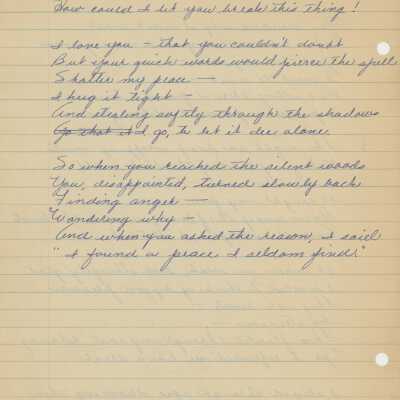 How could I let you break this thing!
I love you - that you couldn't doubt
But your quick words would pierce the spell
Shatter my peace —
I hug it tight -
And stealing softly through the shadows
Go that it I go, to let it die alone.
So when you reached the silent woods
You, disappointed, turned slowly back
Finding anger —
Wondering why -
And when you asked the reason, I said
"I found a peace I seldom find."